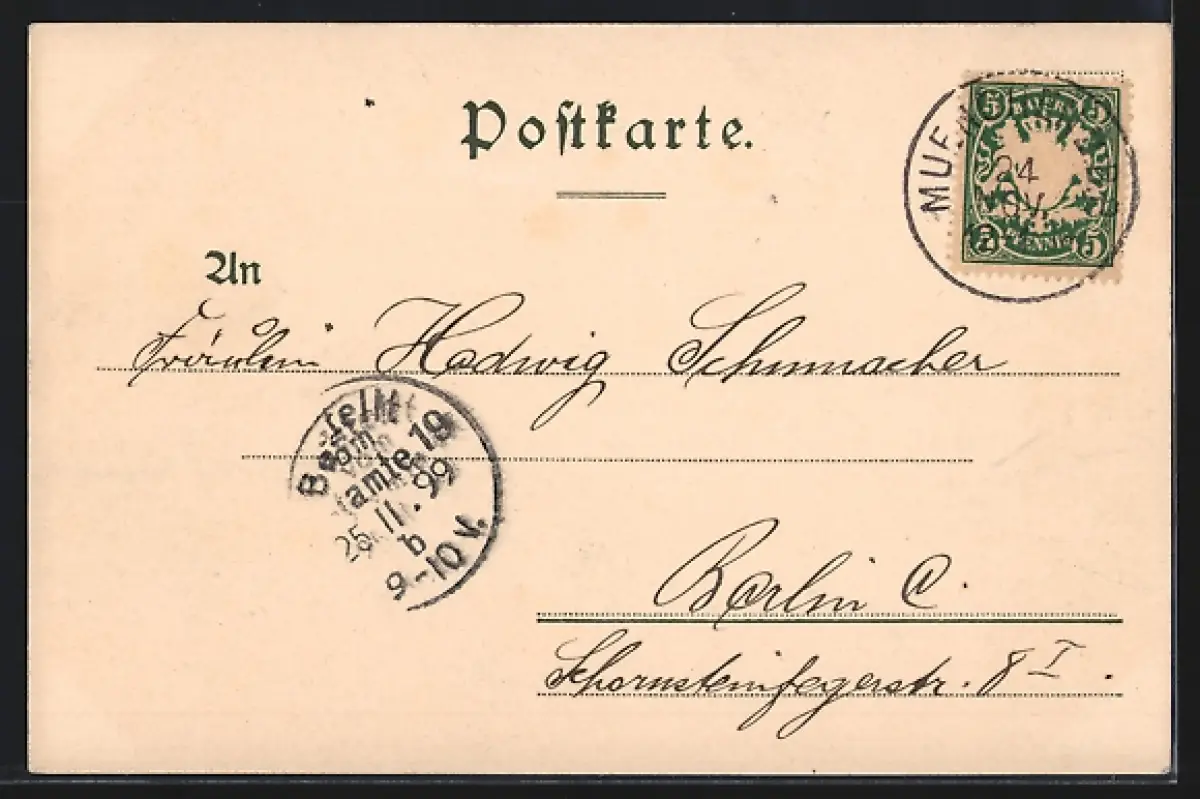 Postkarte.
5 BAYERN 5
24
NOV.
5 PFENNIG 5
An
Fräulein Hedwig Schumacher
Bestellt
vom
Postamte 19
25/11.99
b
9-10 V.
Berlin C.
Schornsteinfegerstr. 8 I.